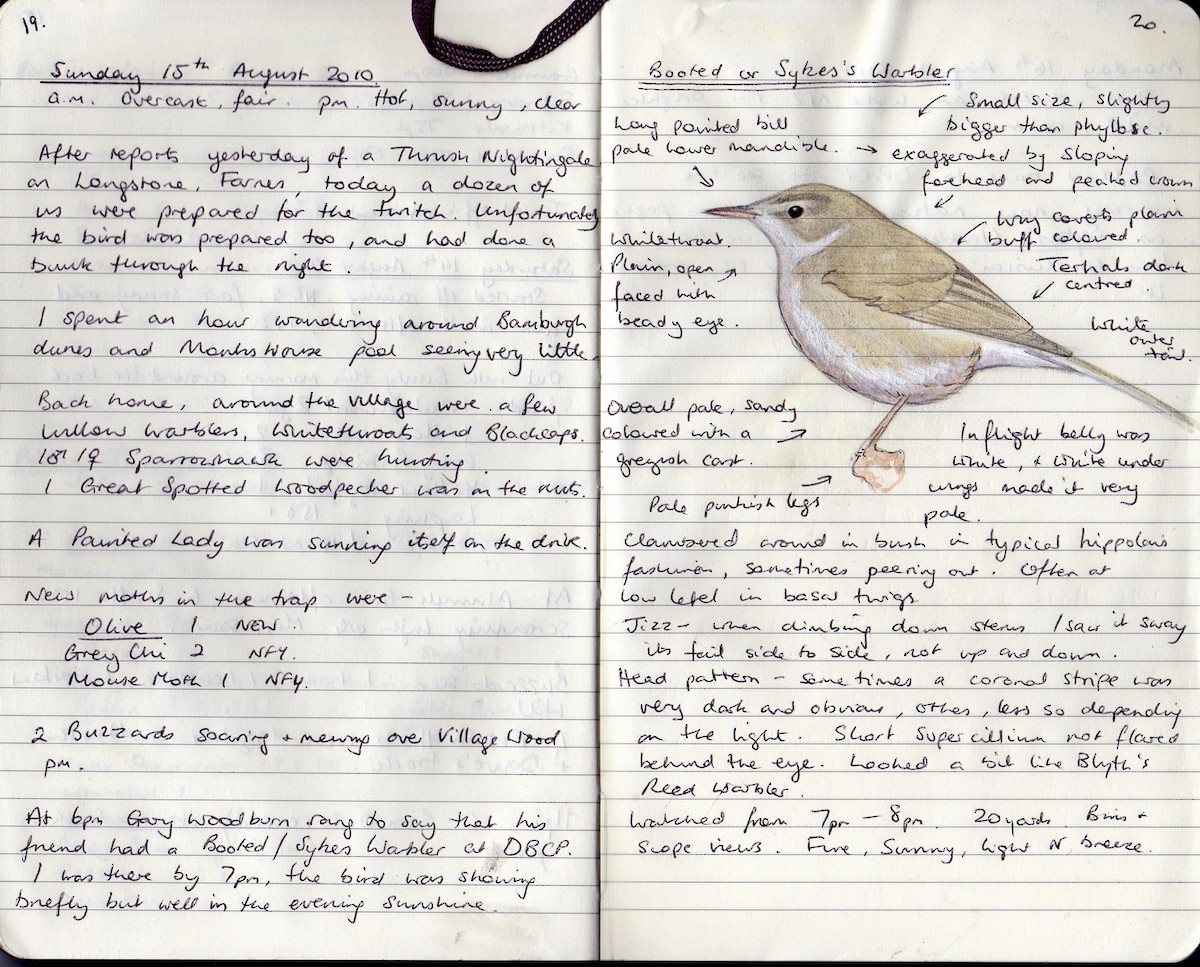 19.
Sunday 15th August 2010.
a.m. Overcast, fair. pm. Hot, sunny, clear
After reports yesterday of a Thrush Nightingale
on Longstone, Farnes, today a dozen of
us were prepared for the twitch. Unfortunately
the bird was prepared too, and had done a
bunk through the night.
I spent an hour wandering around Bamburgh
dunes and Monks House pool seeing very little.
Back home, around the village were a few
Willow Warblers, Whitethroats and Blackcaps.
1♂ 1♀ Sparrowhawk were hunting.
1 Great Spotted Woodpecker was on the nuts.
A Painted Lady was sunning itself on the drive.
New moths in the trap were -
Olive 1 NEW
Grey Chi 2 NFY.
Mouse Moth 1 NFY.
2 Buzzards soaring + mewing over Village Wood
pm.
At 6pm Gary Woodburn rang to say that his
friend had a Booted/Sykes Warbler at DBCP.
I was there by 7pm, the bird was showing
briefly but well in the evening sunshine.
20.
Booted or Sykes's Warbler
Small size, slightly
bigger than phyllosc.
Long pointed bill
pale lower mandible. → exaggerated by sloping
forehead and peaked crown
Wing coverts plain
buff coloured
Whitethroat.
Plain, open
faced with
beady eye.
Tertials dark
centred.
White
outer
tail.
Overall pale, sandy
coloured with a
greyish cast.
Pale pinkish legs
In flight belly was
white, + white under
wings made it very
pale.
Clambered around in bush in typical hippolais
fashion, sometimes peering out. Often at
low level in basal twigs
Jizz - when climbing down stems I saw it sway
its tail side to side, not up and down.
Head pattern - sometimes a coronal stripe was
very dark and obvious, others, less so depending
on the light. Short supercillium not flared
behind the eye. Looked a bit like Blyth's
Reed Warbler.
Watched from 7pm - 8pm. 20 yards. Bins +
scope views. Fine, Sunny, light N. breeze.